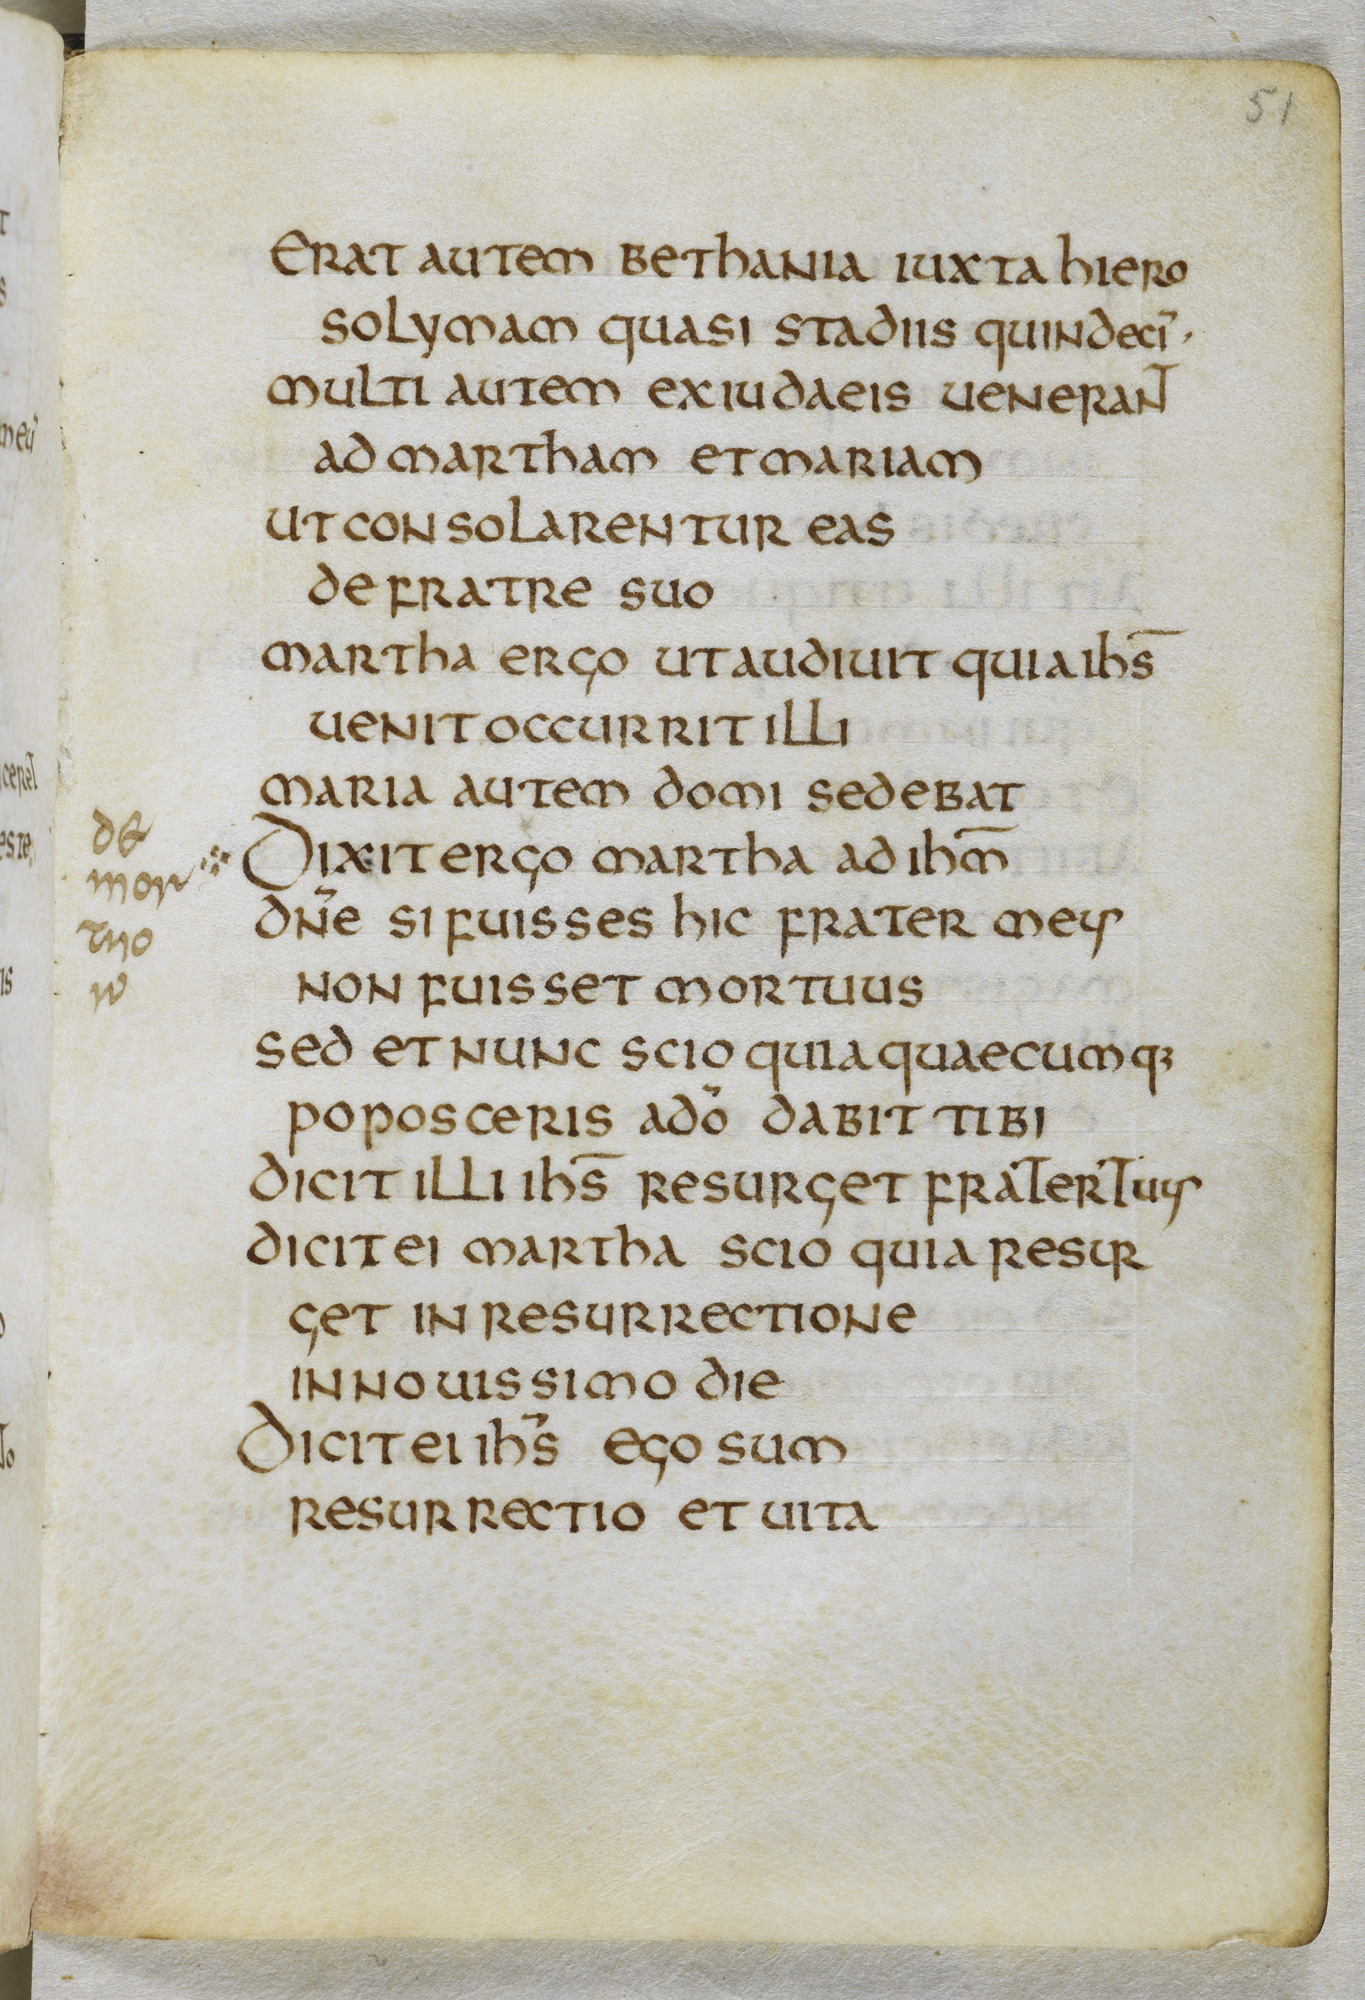 51
Erat autem bethania iuxta hiero
solymam quasi stadiis quindeci̅ ·
multi autem ex iudaeis uenerant
ad martham et mariam
ut consolarentur eas
de fratre suo
martha ergo ut audiuit quia ih̅s
uenit occurrit illi
maria autem domi sedebat
de
mor
tuo
r
Dixit ergo martha ad ih̅m
dn̅e si fuisses hic frater meus
non fuisset mortuus
sed et nunc scio quia quaecumq;
poposceris a do̅ dabit tibi
dicit illi ih̅s resurget frater tuus
dicit ei martha scio quia resur
get in resurrectione
in nouissimo die
Dicit ei ih̅s ego sum
resurrectio et uita